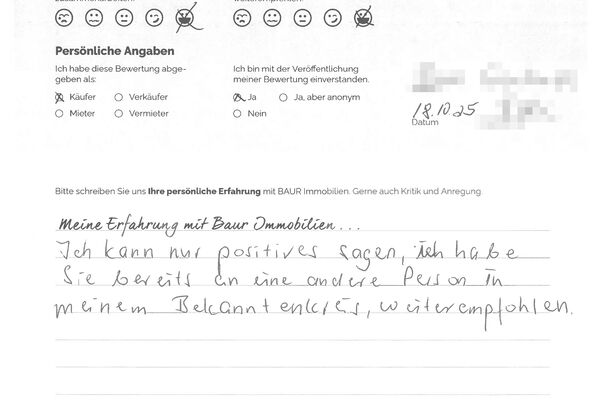 Persönliche Angaben
Ich habe diese Bewertung abge-
geben als:
Käufer
Verkäufer
Mieter
Vermieter
Ich bin mit der Veröffentlichung
meiner Bewertung einverstanden.
Ja
Ja, aber anonym
Nein
18.10.25
Datum
Bitte schreiben Sie uns Ihre persönliche Erfahrung mit BAUR Immobilien. Gerne auch Kritik und Anregung.
Meine Erfahrung mit Baur Immobilien...
Ich kann nur positives sagen, ich habe
Sie bereits an eine andere Person in
meinem Bekanntenkreis, weiterempfohlen.